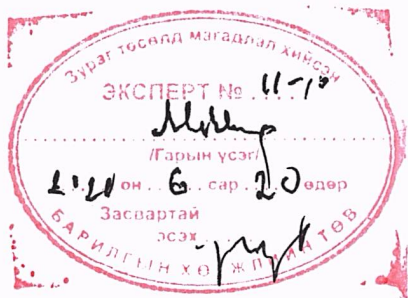 Зураг төсөлд магадлал хийсэн
ЭКСПЕРТ № 11-10
/Гарын үсэг/
он 6 сар 20 өдөр
Засвартай
эсэх
БАРИЛГЫН ХӨГЖЛИЙН ТӨВ